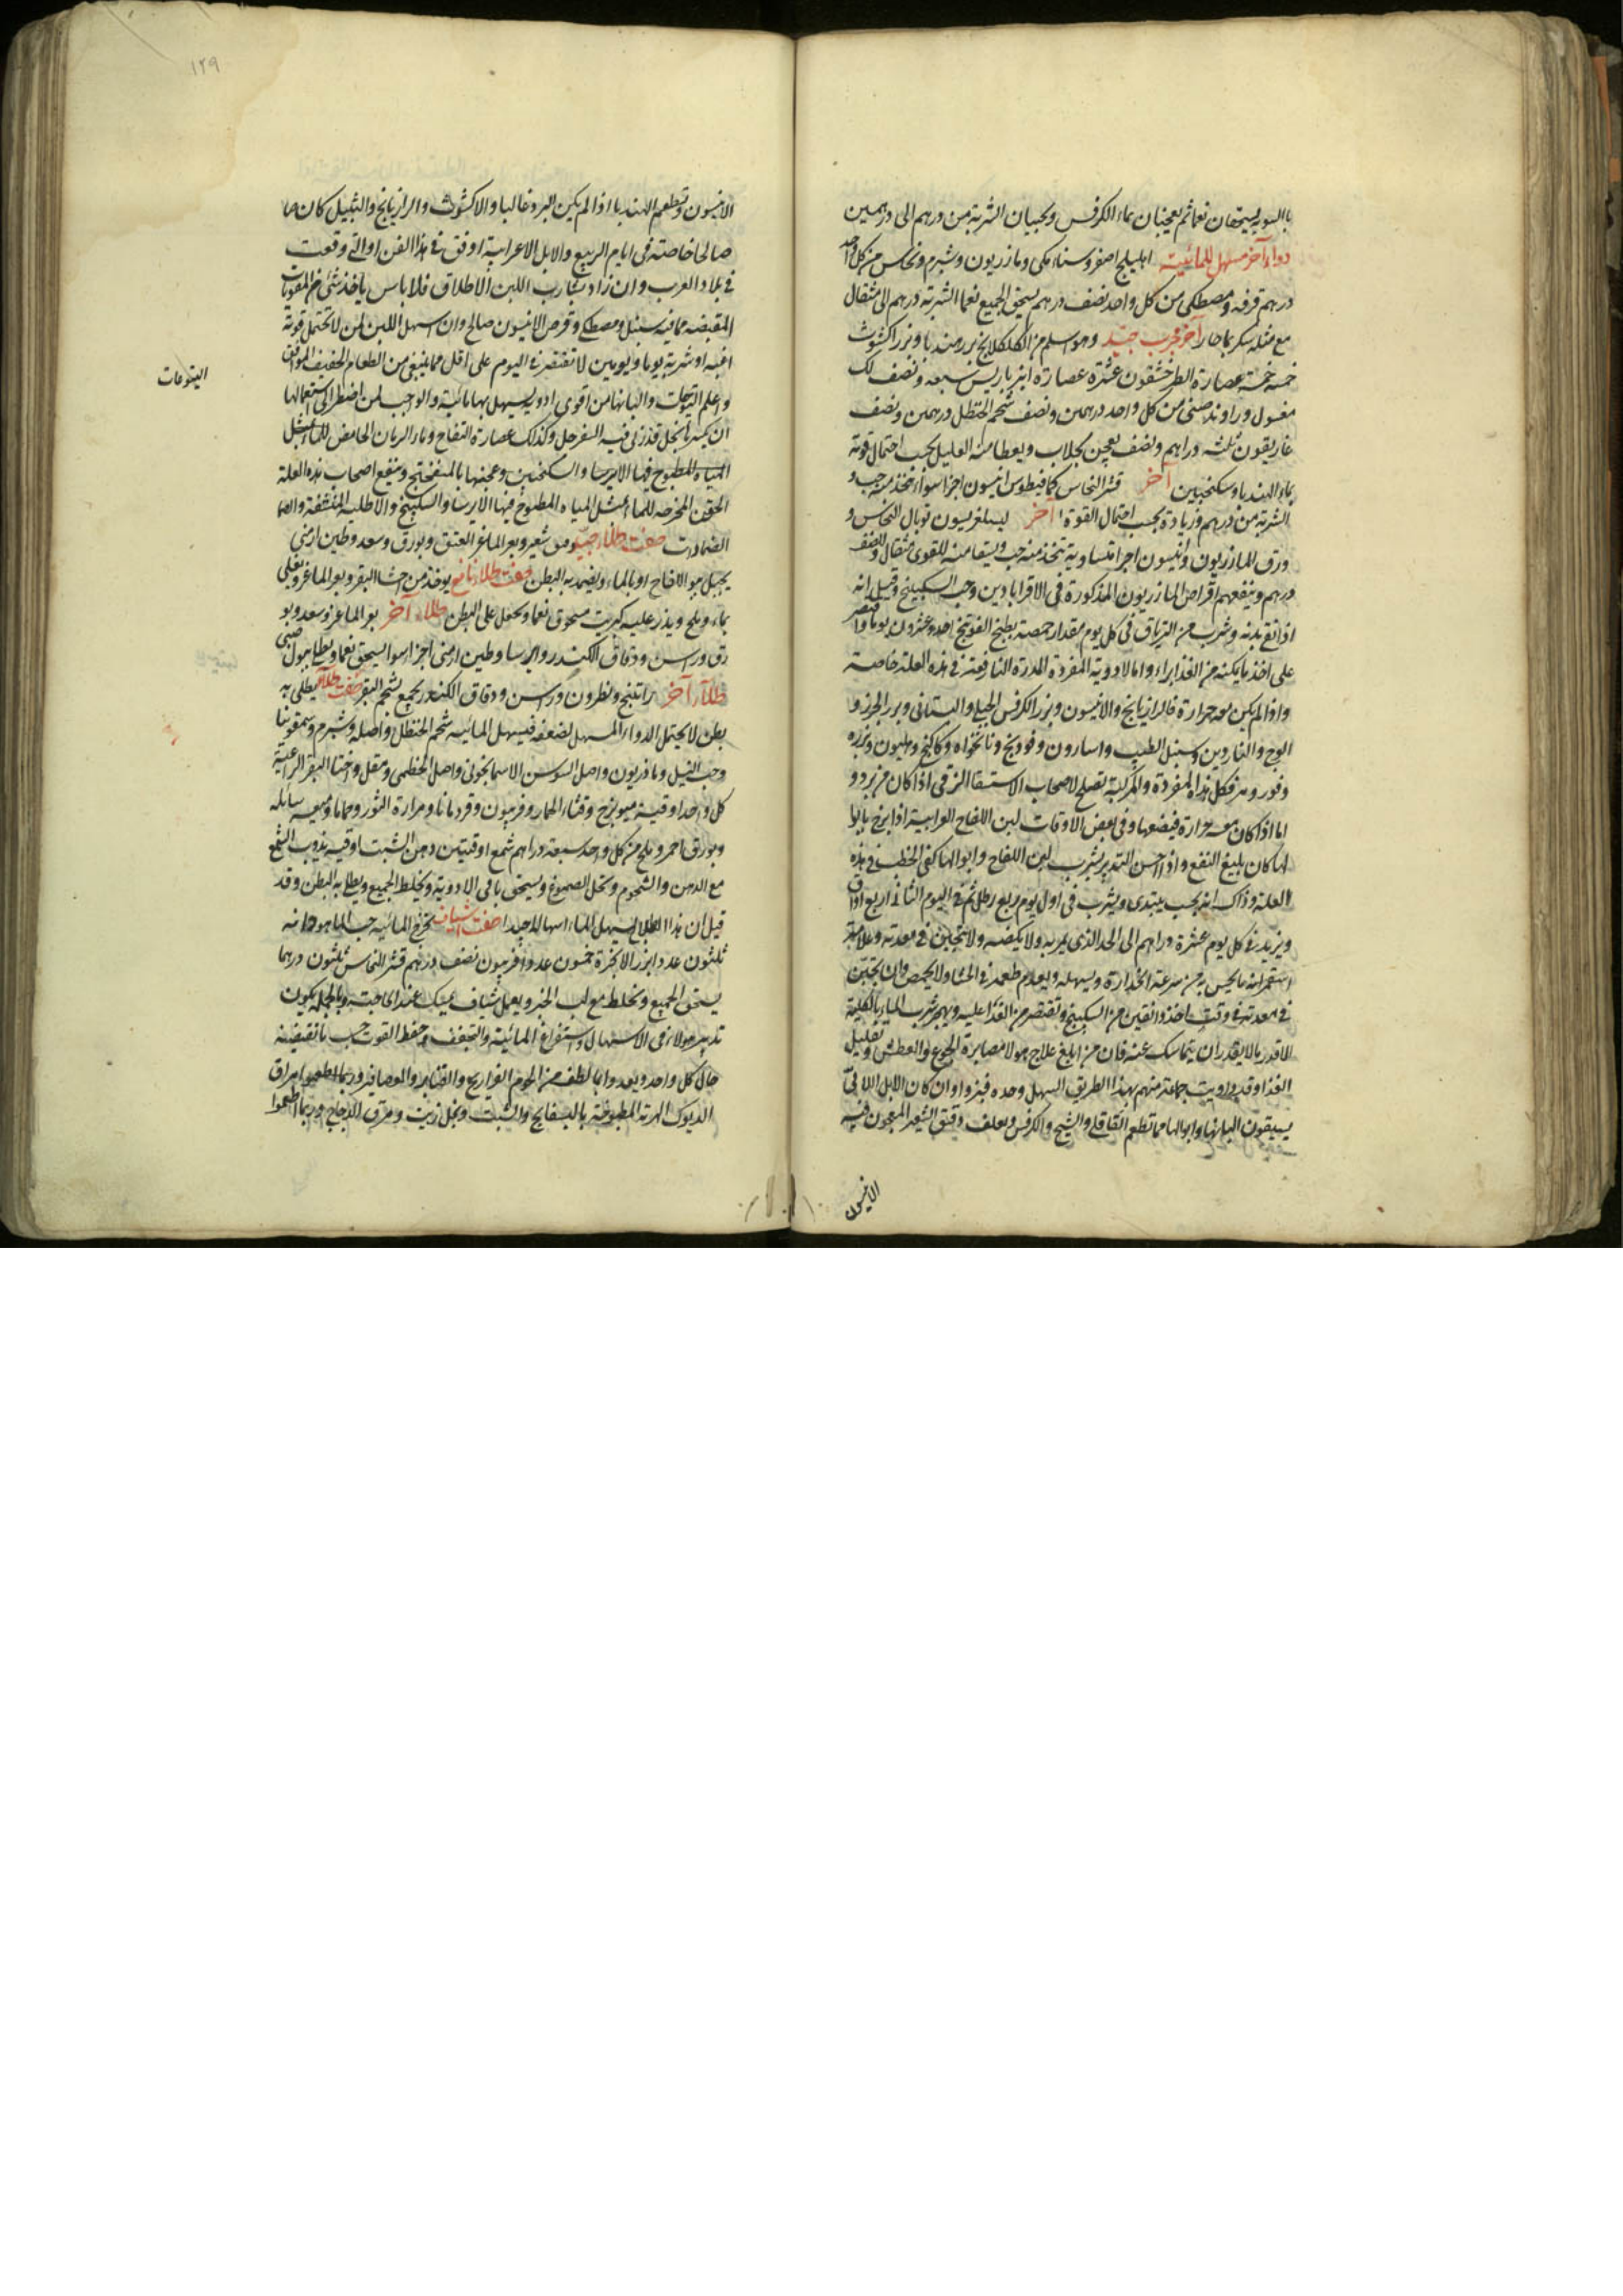 بالسوية يسحقان نعما ثم يعجنان بماء الكرفس ويحببان الشربة من درهم الى درهمين
دواء آخر مسهل للمائية اهليلج اصفر وسناء مكى ومازريون وشبرم ونحاس من كل واحد
درهم قرفة ومصطكى من كل واحد نصف درهم يسحق الجميع نعما الشربة درهم الى مثقال
مع مثله سكر بماء حار آخر مجرب جيد وهو اسلم من الكلكلانج بزر هندبا وبزر اكشوث
خمسة خمسة عصارة الطرخشقون عشرة عصارة انبرباريس سبعة ونصف لك
مغسول وراوند صينى من كل واحد درهمين ونصف شحم الحنظل درهمين ونصف
غاريقون ثلثة دراهم ونصف يعجن بجلاب ويعطا منه العليل بحسب احتمال قوته
بماء الهندبا وسكنجبين آخر قشر النحاس كمافيطوس انيسون اجزا سواء يتخذ منه حب و
الشربة من درهم وزيادة بحسب احتمال القوة آخر توبال النحاس و
ورق المازريون وانيسون اجزا متساوية تتخذ منه حب ويسقا منه للقوى مثقال وللضعف
درهم وينفعهم اقراص المازريون المذكورة فى الاقرابادين وحب السكبينج وقيل انه
اذا نقع بدنه وشرب من الترياق فى كل يوم مقدار حمصة بطبخ الفوتنج احد وعشرون يوما واقتصر
على اخذ ما يمكنه من الغذا براء واما الادوية المفردة المدرة النافعة فى هذه العلة خاصة
واذا لم يكن معه حرارة فالرازيانج والانيسون وبزر الكرفس الجبلى والبستانى وبزر الجزر و
الوج والناردين وسنبل الطيب واسارون وفودنج ونانخواه وكاكنج وهليون وبزره
وفو ومر فكل هذا المفردة والمركبة تصلح لاصحاب الاستسقا الزقى اذا كان من برد و
اما اذا كان معه حرارة فيضعها وفى بعض الاوقات لبن اللقاح العرابية اذا مزج بابوا
لها كان بليغ النفع واذا احسن التدبير بشرب لبن اللقاح وابوالها كفى الخطب فى هذه
العلة وذاك انه يجب يبتدى ويشرب فى اول يوم ربع رطل ثم فى اليوم الثانى اربع اواق
ويزيد فى كل يوم عشرة دراهم الى الحد الذى يمر به ولا يكضه ولا يتجبن فى معدته وعلامة
استمرائه ما يحس به من سرعة انحداره ويسهله ويعدم طعمه فى الجشا ولا يحمض وان يتجبن
فى معدته فى وقت اخذ دانقين من السكبينج وتقتصر من الغذا عليه ويهجر شرب الماء بالكلية
الا قدر ما لا يقدر ان يتماسك عنه فان من ابلغ علاج هولا مصابرة الجوع والعطش وتقليل
الغذا وقد داويت جماعة منهم بهذا الطريق السهل وحده فبرواوا وان كان الابل اللاتى
يسقون البانها وابوالها مما تطعم القاقلى والشيح والكرفس ويعلف دقيق الشعير المعجون فيه
الانيسون
١٢٩
الانيسون وتطعم الهندبا اذا لم يكن البرد غالبا والاكشوث والرازيانج والثيل كان
صالحا خاصة فى ايام الربيع والابل الاعرابية اوفق فى هذا الفن او التى وقعت
فى بلاد العرب وان زاد بشارب اللبن الاطلاق فلا باس ياخذ شئ من المقويات
المقبضة مما فيه سنبل ومصطكى وقرص الانيسون صالح وان اسهل اللبن لمن لا تحتمل قوته
اغبه او شربة يوما ويومين لا تقتصر فى اليوم على اقل مما ينبغى من الطعام الخفيف الموافق
واعلم اليتوعات والبانها من اقوى ادوية يسهل بها مائية والواجب لمن اضطر الى استعمالها
ان يكسرها بخل قد ربى فيه السفرجل وكذلك عصارة التفاح وماء الرمان الحامض للماء مثل
المياه المطبوخ فيها الايرسا والسكنجبين وعجنها بالميفختج وينفع اصحاب هذه العلة
الحقن المخرجة للماء مثل المياه المطبوخ فيها الايرسا والسكبينج والاطلية المنشفة واما
الضمادات صفت طلاء جيد دقيق شعير وبعر الماعز العتيق وبورق وسعد وطين ارمنى
يجبل ببول اللقاح او بالماء ويضمد به البطن صفت طلاء نافع يوخذ من اخثا البقر وبعر الماعز ويغلى
بماء وملح ويذر عليه كبريت مسحوق نعما ويجعل على البطن طلاء آخر بعر الماعز وسعد وبو
رق وراسن ودقاق الكندر وايرسا وطين ارمنى اجزا سوا يسحق نعما ويطلى ببول صبى
طلاء آخر راتينج ونطرون وراسن ودقاق الكندر يجمع بشحم البقر صفت طلاء يطلى به
بطن لا يحتمل الدواء المسهل لضعفه فيسهل المائية شحم الحنظل واصله وشبرم وسقمونيا
وحب النيل ومازريون واصل السوسن الاسمانجونى واصل الخطمى ومقل واخثا البقر الراعية
كل واحد اوقية ميويزج وقثاء الحمار وفربيون وقردمانا ومرارة الثور وحماما وميعه سائله
وبورق احمر وملح من كل واحد سبعة دراهم شمع اوقيتين دهن الشبت اوقية يذوب الشمع
مع الدهن والشحوم وتحل الصموغ ويسحق باقى الادوية ويخلط الجميع ويطلى به البطن وقد
قيل ان هذا الطلاء يسهل الماء اسهالا جيدا صفت شياف تخرج المائية حب الماهودانه
ثلثون عددا بزر الانجرة خمسون عددا فربيون نصف درهم قشر النحاس ثلثون درهما
يسحق الجميع ونخلط مع لب الخبز ويعمل شياف يمسك عند الحاجة وبالجملة يكون
تدبير هولاء فى الاسهال واستفراغ المائية والتجفف وحفظ القوت حسب ما تقتضيه
حال كل واحد ويغدوا بما لطف من لحوم الفراريج والقنابر والعصافير وربما اطعموا مراق
الديوك الهرمة المطبوخة بالبسفايج والشبت وبخل زيت ومرق الدجاج وربما اطعموا
اليتوعات